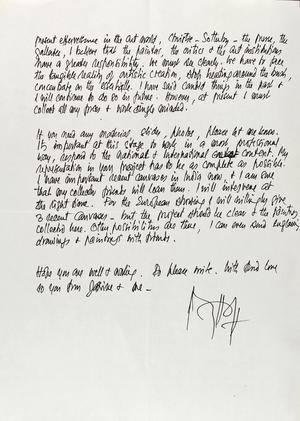 present effervescence in the art world, Christie - Sotheby - the press, the
galleries, I believe that the painter, the critics & the art institutions
have a greater responsibility. We must see clearly. We have to face
the tangible reality of artistic creation, stop beating around the bush,
concentrate on the essentials. I have said candid things in the past &
I will continue to do so in future. However, at present I must
collect all my forces & work single minded.
If you need any materials slides, photos, please let me know.
It's important at this stage to work in a most professional
way, respond to the national & International context. My
representation in your project has to be as complete as possible.
I have important recent canvases in India now & I am sure
that my collector friends will loan them. I will intervene at
the right time. For the European showing I will willingly give
3 recent canvases - but the project should be clear & the paintings
collected here. Other possibilities are there, I can even send engravings
drawings & paintings with friends.
Hope you are well & working. Do please write. With kind love
to you from Janine & me -